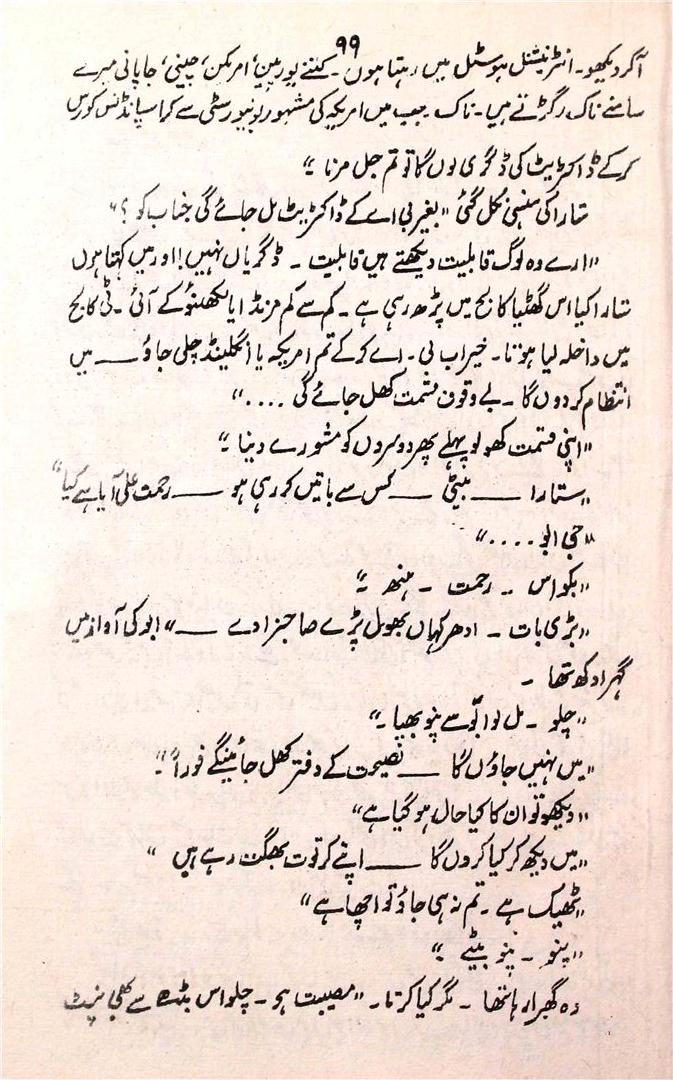 ۹۹
آکر دیکھو۔ انٹرنیشنل ہوسٹل میں رہتا ہوں۔ کتنے یورپین، امریکن، چینی، جاپانی میرے
سامنے ناک رگڑتے ہیں۔ ناک۔ جب میں امریکہ کی مشہور یونیورسٹی سے کراسپانڈنس کورس
کرکے ڈاکٹریٹ کی ڈگری لوں گا تو تم جل مرنا۔"
تارا کی ہنسی نکل گئی "بغیر بی اے کے ڈاکٹریٹ مل جائے گی جناب کو؟"
"ارے وہ لوگ قابلیت دیکھتے ہیں قابلیت۔ ڈگریاں نہیں! اور میں کہتا ہوں
تارا کیا اس گھٹیا کالج میں پڑھ رہی ہے۔ کم سے کم مرنڈا یا لکھنؤ کے آئی۔ ٹی کالج
میں داخلہ لیا ہوتا۔ خیر اب بی۔ اے کرکے تم امریکہ یا انگلینڈ چلی جاؤ ـــــ میں
انتظام کر دوں گا۔ بے وقوف قسمت کھل جائے گی ...."
"اپنی قسمت کھولو پہلے پھر دوسروں کو مشورے دینا۔"
"ستارا ـــــ بیٹی ـــــ کس سے باتیں کر رہی ہو ـــــ رحمت علی آیا ہے کیا"
"جی ابو ...."
"بکواس۔ رحمت۔ ہنھ۔"
"بڑی بات۔ ادھر کہاں بھول پڑے صاحبزادے ـــــ" ابو کی آواز میں
گہرا دکھ تھا۔
"چلو۔ مل لو ابّو سے پنو بھیا۔"
"میں نہیں جاؤں گا ـــــ نصیحت کے دفتر کھل جائینگے فوراً۔"
"دیکھو تو ان کا کیا حال ہو گیا ہے"
"میں دیکھ کر کیا کروں گا ـــــ اپنے کرتوت بھگت رہے ہیں"
"ٹھیک ہے۔ تم نہ ہی جاؤ تو اچھا ہے"
"پنو۔ پنو بیٹے۔"
وہ گھبرا رہا تھا۔ مگر کیا کرتا۔ "مصیبت ہو۔ چلو اس بڈھے سے بھی نپٹ